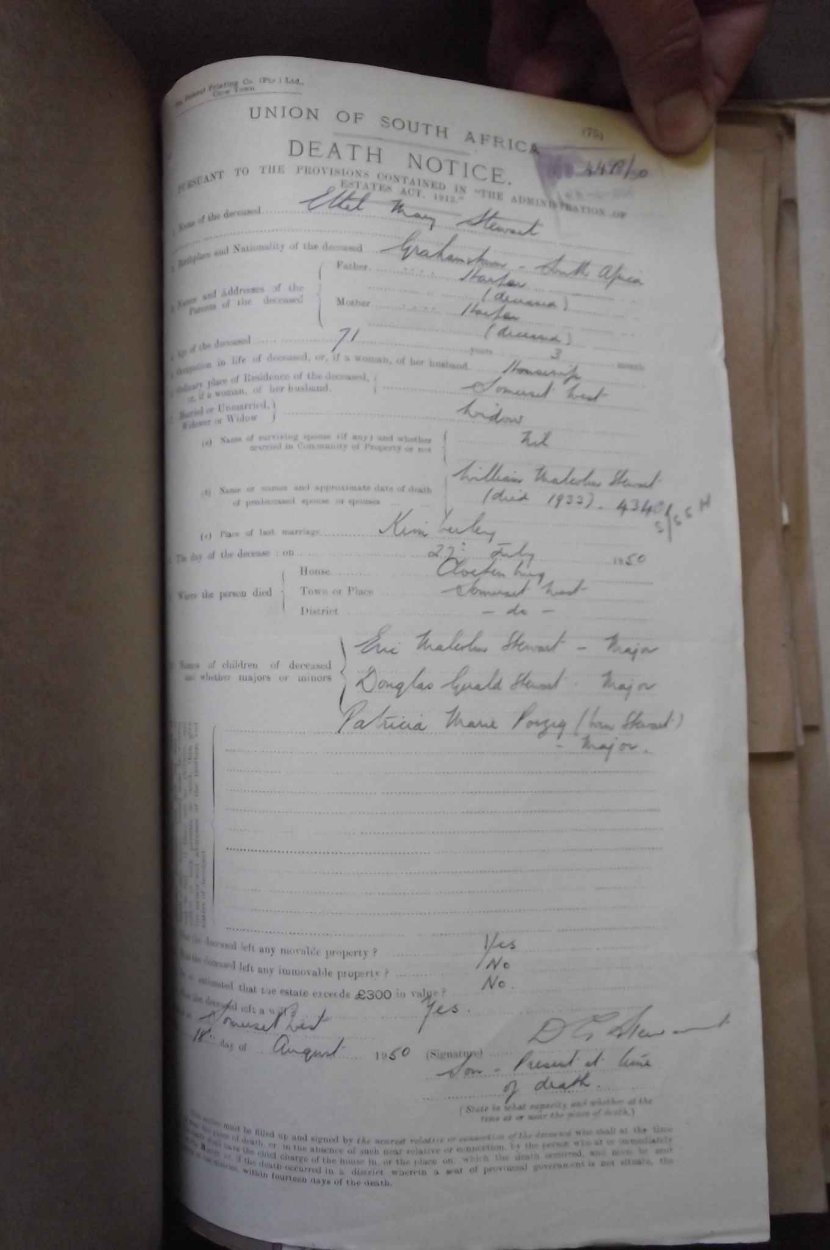 Cape Town
UNION OF SOUTH AFRICA
(75)
DEATH NOTICE.
PURSUANT TO THE PROVISIONS CONTAINED IN "THE ADMINISTRATION OF
ESTATES ACT, 1913."
Name of the deceased Ethel Mary Stewart
Birthplace and Nationality of the deceased Grahamstown - South Africa
Names and Addresses of the Parents of the deceased
Father Harper
(deceased)
Mother Harper
(deceased)
Age of the deceased 71 years 3 months
Occupation in life of deceased, or, if a woman, of her husband Housewife
Ordinary place of Residence of the deceased, or, if a woman, of her husband. Somerset West
Married or Unmarried, Widower or Widow Widow
(a) Name of surviving spouse (if any) and whether married in Community of Property or not Nil
(b) Name or names and approximate date of death of predeceased spouse or spouses William Malcolm Stewart
(died 1933).
(c) Place of last marriage Kimberley
The day of the decease : on 27th July 1950
Where the person died
House
Town or Place Somerset West
District - do -
Names of children of deceased and whether majors or minors
Eric Malcolm Stewart - Major
Douglas Gerald Stewart - Major
Patricia Marie Poszig (born Stewart)
- Major.
deceased left any movable property ? Yes
deceased left any immovable property ? No
estimated that the estate exceeds £300 in value ? No.
the deceased left a will Yes.
Somerset West
18th day of August 1950
(Signature) D G Stewart
Son - Present at time
of death.
(State in what capacity and whether at the
time at or near the place of death.)
must be filled up and signed by the nearest relative or connection of the deceased who shall at the time
of death, or in the absence of such near relative or connection, by the person who at or immediately
the chief charge of the house in, or the place on, which the death occurred, and must be sent
if the death occurred in a district wherein a seat of provincial government is not situate, the
within fourteen days of the death.